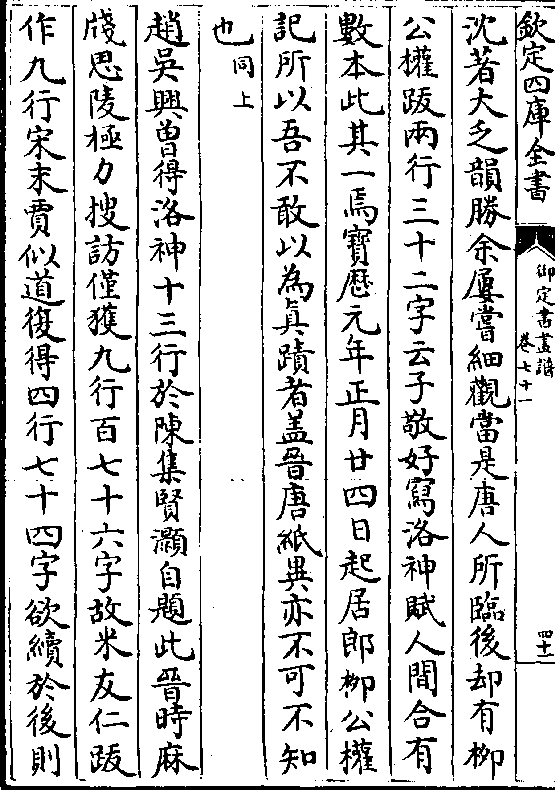 欽定四庫全書
御定書畫譜
卷七十一
四十一
沈著大乏韻勝余屢嘗細觀當是唐人所臨後却有柳
公權䟦兩行三十二字云子敬好寫洛神賦人間合有
數本此其一焉寶歴元年正月廿四日起居郎柳公權
記所以吾不敢以為真蹟者盖晉唐紙異亦不可不知
也同上
趙吳興曾得洛神十三行於陳集賢灝自題此晉時麻
牋思陵極力搜訪僅獲九行百七十六字故米友仁䟦
作九行宋末賈似道復得四行七十四字欲續於後則